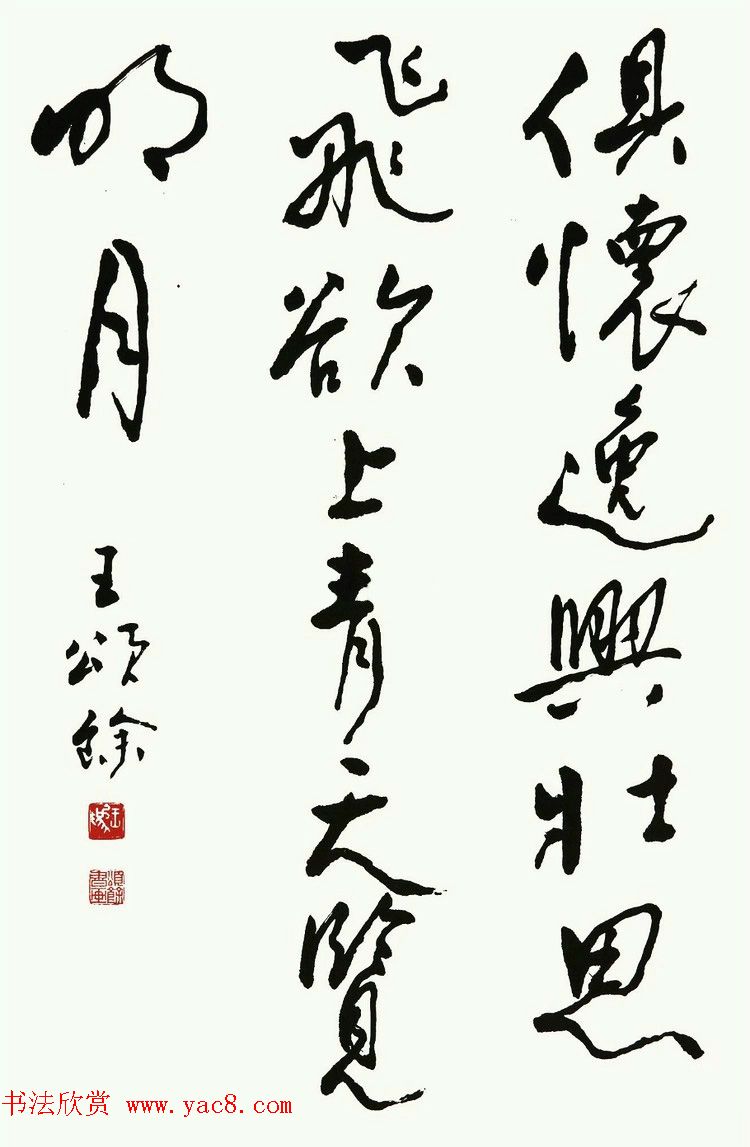 俱懷逸興壯思
飛欲上青天覽
明月
王頌餘
頌餘書畫
书法欣赏 www.yac8.com